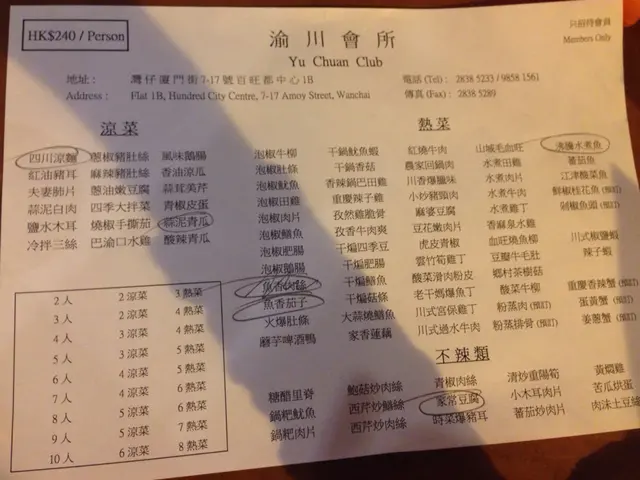 HK$240 / Person
渝川會所
Yu Chuan Club
只招待會員
Members Only
地址： 灣仔廈門街7-17號百旺都中心1B
電話 (Tel)： 2838 5233 / 9858 1561
Address： Flat 1B, Hundred City Centre, 7-17 Amoy Street, Wanchai
傳真 (Fax)： 2838 5289
涼菜
四川涼麵 蔥椒豬肚絲 風味鵝腸
紅油豬耳 麻辣豬肚絲 香油涼瓜
夫妻肺片 蔥油嫩豆腐 蒜茸芙芹
蒜泥白肉 四季大拌菜 青椒皮蛋
鹽水木耳 燒椒手撕茄 蒜泥青瓜
冷拌三絲 巴渝口水雞 酸辣青瓜
熱菜
泡椒牛柳 干鍋魷魚蝦 紅燒牛肉 山城毛血旺 沸騰水煮魚
泡椒肚條 干鍋香菇 農家回鍋肉 水煮田雞 蕃茄魚
泡椒魷魚 香辣鍋巴田雞 川香爆臘味 水煮肉片 江津酸菜魚
泡椒田雞 重慶辣子雞 小炒豬頸肉 水煮牛肉 鮮椒桂花魚 (預訂)
泡椒肉片 孜然雞脆骨 麻婆豆腐 水煮雞丁 剁椒魚頭 (預訂)
泡椒鱔魚 孜香牛肉爽 豆花嫩肉片 香麻泉水雞
泡椒肥腸 干煸四季豆 虎皮青椒 血旺燒魚柳 川式椒鹽蝦
泡椒鵝腸 干煸肥腸 雲竹筍雞丁 豆瓣牛毛肚 辣子蝦
魚香肉絲 干煸鱔魚 酸菜滑肉粉皮 鄉村茶樹菇
魚香茄子 干煸菇條 老干媽爆魚丁 酸菜牛柳 重慶香辣蟹 (預訂)
火爆肚條 大蒜燒鱔魚 川式宮保雞丁 粉蒸肉 (預訂) 蛋黃蟹 (預訂)
磨芋啤酒鴨 家香蓮藕 川式過水牛肉 粉蒸排骨 (預訂) 姜蔥蟹 (預訂)
2 人 2 涼菜 3 熱菜
3 人 2 涼菜 4 熱菜
4 人 3 涼菜 4 熱菜
5 人 3 涼菜 5 熱菜
6 人 4 涼菜 5 熱菜
7 人 4 涼菜 6 熱菜
8 人 5 涼菜 6 熱菜
9 人 5 涼菜 7 熱菜
10 人 6 涼菜 8 熱菜
不辣類
糖醋里脊 鮑菇炒肉絲 青椒肉絲 清炒重陽筍 黃燜雞
鍋粑魷魚 西芹炒鱔絲 家常豆腐 小木耳肉片 苦瓜烘蛋
鍋粑肉片 西芹炒肉絲 時菜爆豬耳 蕃茄炒肉片 肉沫土豆